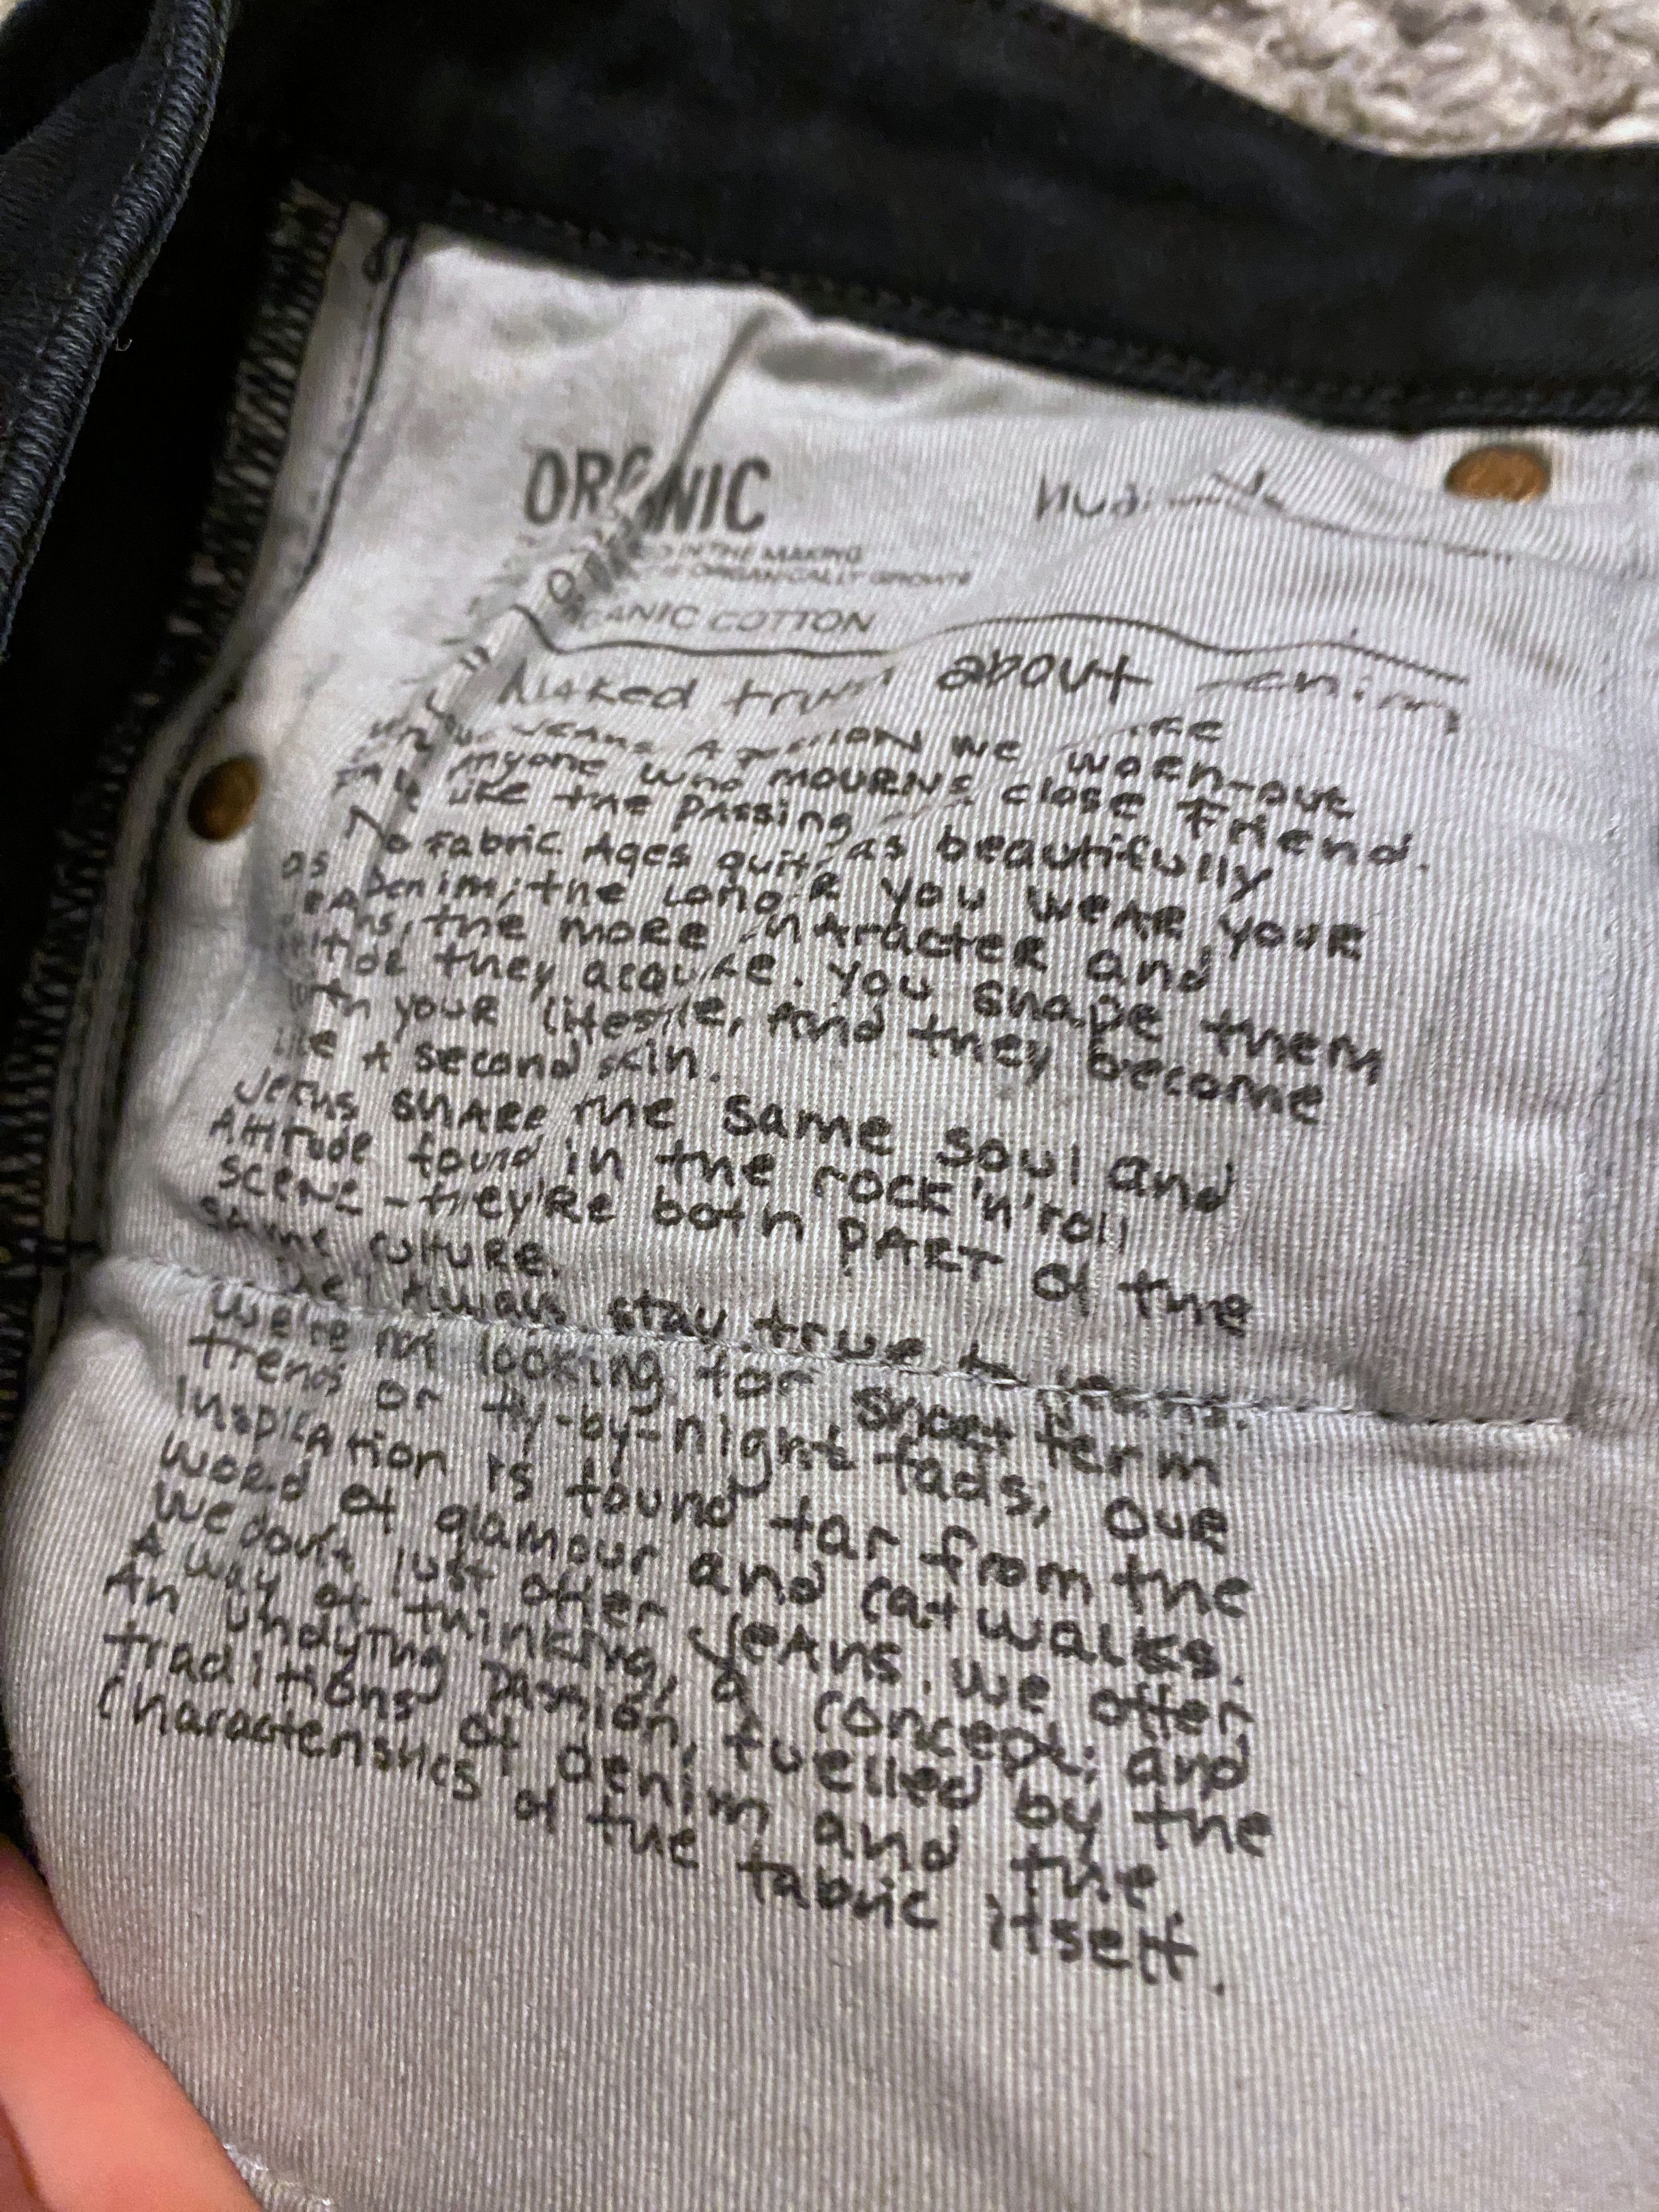 ORGANIC
IN THE MAKING
ORGANICALLY GROWN
ORGANIC COTTON
Naked truth about denim
Jeans A passion we
anyone who mourns worn-out
like the passing close friend.
No fabric Ages quite as beautifully
as Denim; the longer you wear your
jeans, the more character and
attitude they acquire. you shape them
with your lifestyle, And they become
like A second skin.
Jeans share the same soul and
Attitude found in the rock 'n' roll
scene - they're both PART of the
same culture.
We'll Always stay true to jeans.
We're not looking for short term
trends or fly-by-night fads, our
Inspiration is found far from the
world of glamour and catwalks.
We don't just offer jeans. we offer
A way of thinking, a concept; and
An undying passion, fuelled by the
traditions of denim and the
characteristics of the fabric itself.